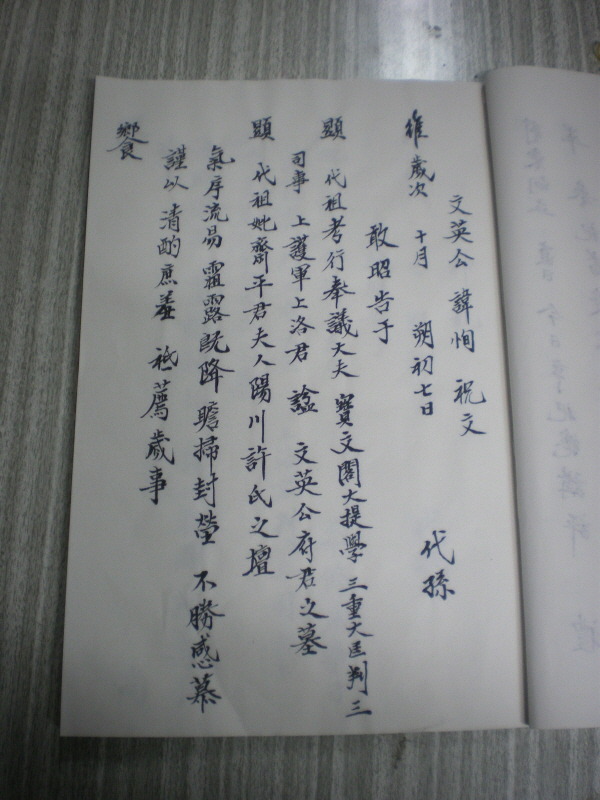 文英公 諱恂 祝文
維歲次 十月 朔初七日 代孫
敢昭告于
顯 代祖考行奉議大夫 寶文閣大提學 三重大匡判三
司事 上護軍上洛君 諡 文英公府君之墓
顯 代祖妣齋平君夫人陽川許氏之壇
氣序流易 霜露旣降 瞻掃封塋 不勝感慕
謹以 清酌庶羞 祗薦歲事
饗